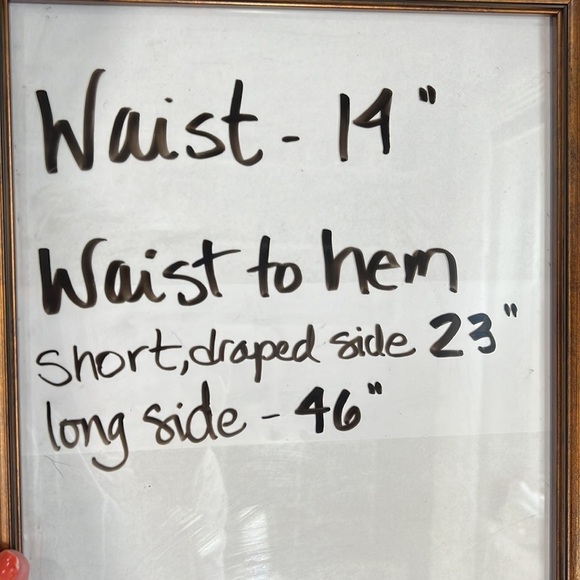 Waist - 14"
Waist to hem
short, draped side 23"
long side - 46"